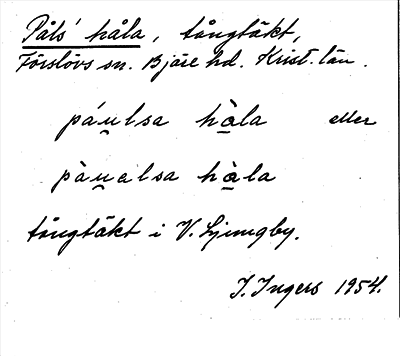 Påls' håla, tångtäkt,
Förslövs sn. Bjäre hd. Krist. län.
páu̯lsa hà̲la eller
pàu̯alsa hà̲la
tångtäkt i V. Ljungby.
I. Ingers 1954.